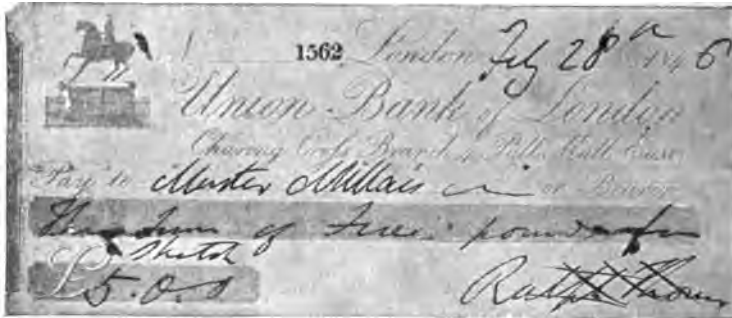 N 1562 London Feby 28th 1846
Union Bank of London
Charing Cross Branch, 4, Pall Mall East
Pay to Master Millais or Bearer
The sum of five pounds for
sketch
£ 5.0.0 Ralph Thomas